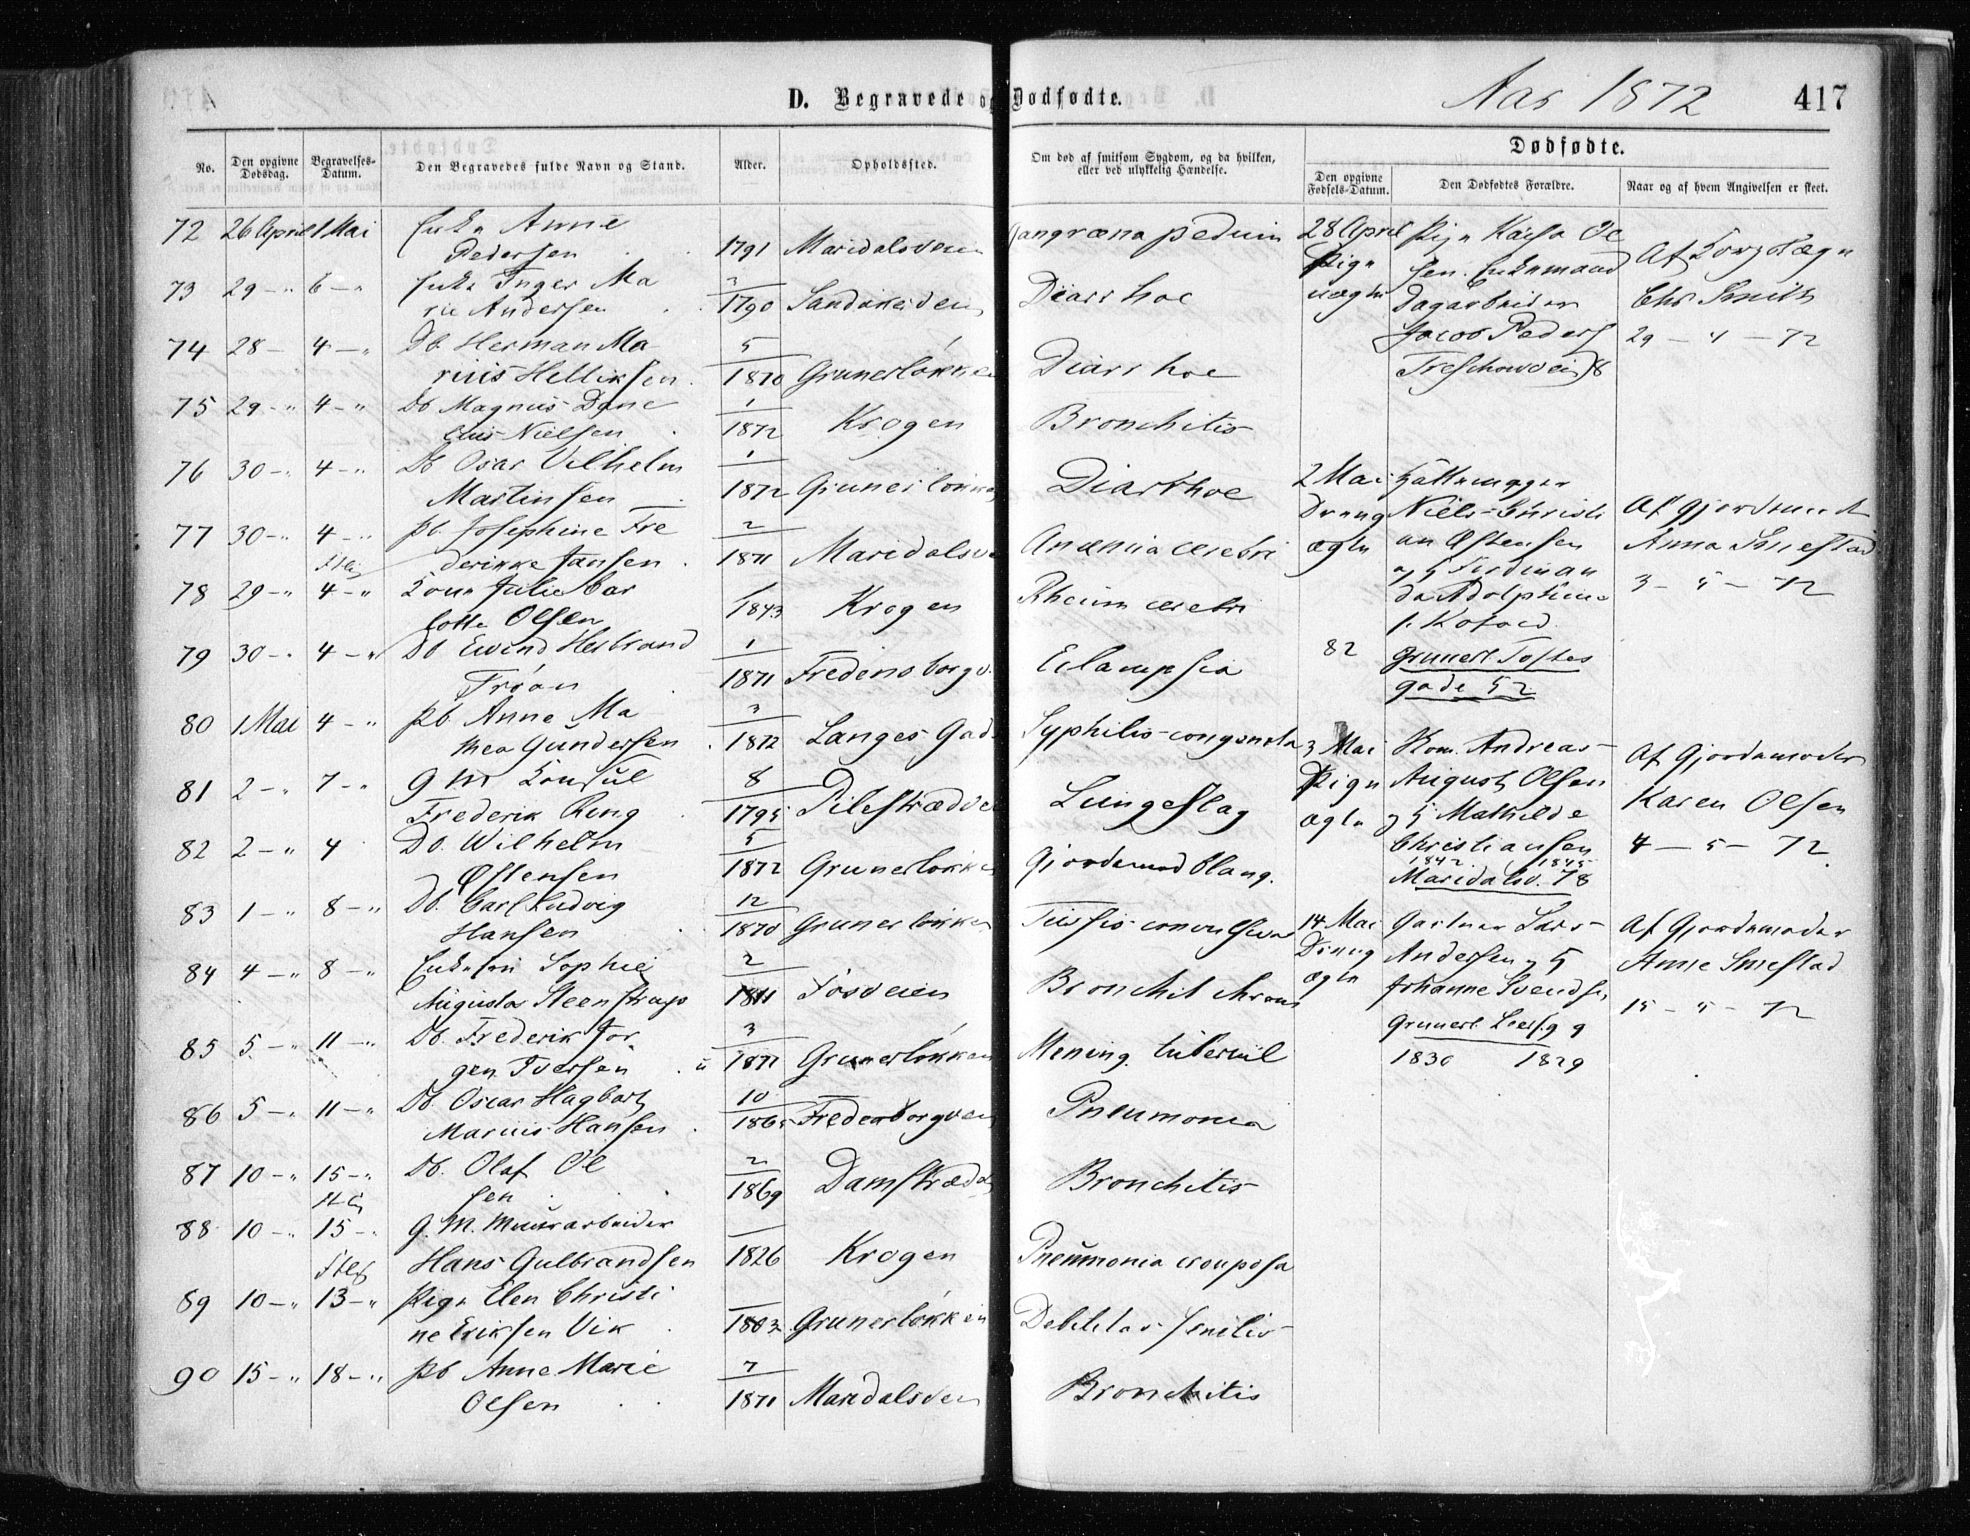 D. Begravede og Dødfødte.
Aar 1872
417
No.
Den opgivne Dødsdag.
Begravelses-Datum.
Den Begravedes fulde Navn og Stand.
Alder.
Opholdssted.
Om død af smitsom Sygdom, og da hvilken, eller ved ulykkelig Hændelse.
Dødfødte.
Den opgivne Fødsels-Datum.
Den Dødfødtes Forældre.
Naar og af hvem Angivelsen er skeet.
72 26 April 1 Mai Enke Anne
Pedersen 1791 Maridalsveien Gangræna pedum
73 29 - " 6 - " Enke Inger Ma
rie Andersen 1790 Sandakerveien Diarrhoe
74 28 - 4 - " Db. Herman Ma 5
rius Helliksen 1870 Grunerløkken Diarrhoe
75 29 - " 4 - " Db Magnus Dane 1
lius Nielsen 1872 Krogen Bronchitis
76 30 - " 4 - " Db Oscar Vilhelm 1
Martinsen 1872 Grunerløkken Diarrhoe
77 30 - " 4 - " Pb. Josephine Fre 2
derikke Jansen 1871 Maridalsvei Anæmia cerebri
78 29 - " 4 - " Kone Julie Char
lotte Olsen 1843 Krogen Rheum cerebri
79 30 - " 4 - " Db Eivind Herbrand 1
Trøan 1871 Fredensborgv. Eclampsia
80 1 Mai 4 - " Pb. Anne Ma 3
thea Gundersen 1872 Langes Gade Syphilis congenita
81 2 - " 7 - " G M Konsul 8
Frederik Ring 1795 Pilestrædet Lungeslag
82 2 - " 4 Db. Wilhelm 5
Østensen 1872 Grunerløkken Gjordemod blanq.
83 1 - " 8 - " Db. Carl Ludvig 12
Hansen 1870 Grunerløkken Tussis convulsiva
84 4 - " 8 - " Sophie 2
Augusta Steenstrup 1811 Fosveien Bronchit chron
85 5 - " 11 - " Db. Frederik Jør 3
gen Iversen 1871 Grunerløkken Mening. tubercul
86 5 - " 11 - " Db. Oscar Hagbart 10
Marius Hansen 1865 Fredensborgveien Pneumonia
87 10 - " 15 - " Db. Olaf Ol 2
sen 1869 Damstrædet Bronchitis
88 10 - " 15 - " G. M. Muurarbeider
Hans Gulbrandsen 1826 Krogen Pneumonia crouposa
89 10 - " 13 - " Pige Elen Christi
ne Eriksen Vik 1803 Grunerløkken Debilitas senilis
90 15 - " 18 - " Pb Anne Marie 7
Olsen 1871 Maridalsveien Bronchitis
28 April
Pige
uægte
Pige Kaisa Ol
sen. Enkemand
Dagarbeider
Jacob Peders
Treschowvei 8
Af Corpslæge
Chr Smith
29 - 4 - 72
2 Mai
Dreng
ægte
Niels Christi
an Østensen
og H Ferdinan
da Adolphine
f. Kofoed
82
Grunerl. Toftes
gade 52
Af Gjordemoder
Anna Smestad
3 - 5 - 72
3 Mai
Pige
ægte
Kom. Andreas
August Olsen
og H Mathilde
Christiansen
1842. 1845
Maridalsv. 78
Af Gjordemoder
Karen Olsen
4 - 5 - 72
14 Mai
Dreng
ægte
Gartner Lars
Andersen og H
Johanne Svendsn
Grunerl. Leersg 9
1830 1829
Af Gjordemoder
Anne Smestad
15 - 5 - 72